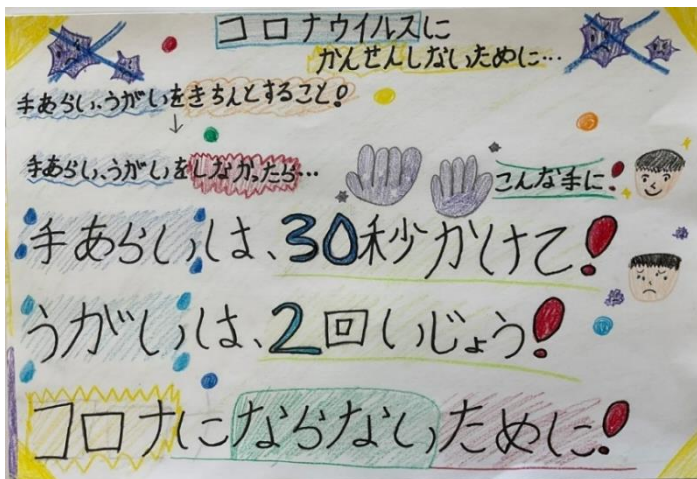 コロナウイルスに
かんせんしないために…
手あらい、うがいをきちんとすること!
↓
手あらい、うがいをしなかったら…
こんな手に!
手あらいは、30秒かけて!
うがいは、2回いじょう!
コロナにならないために!